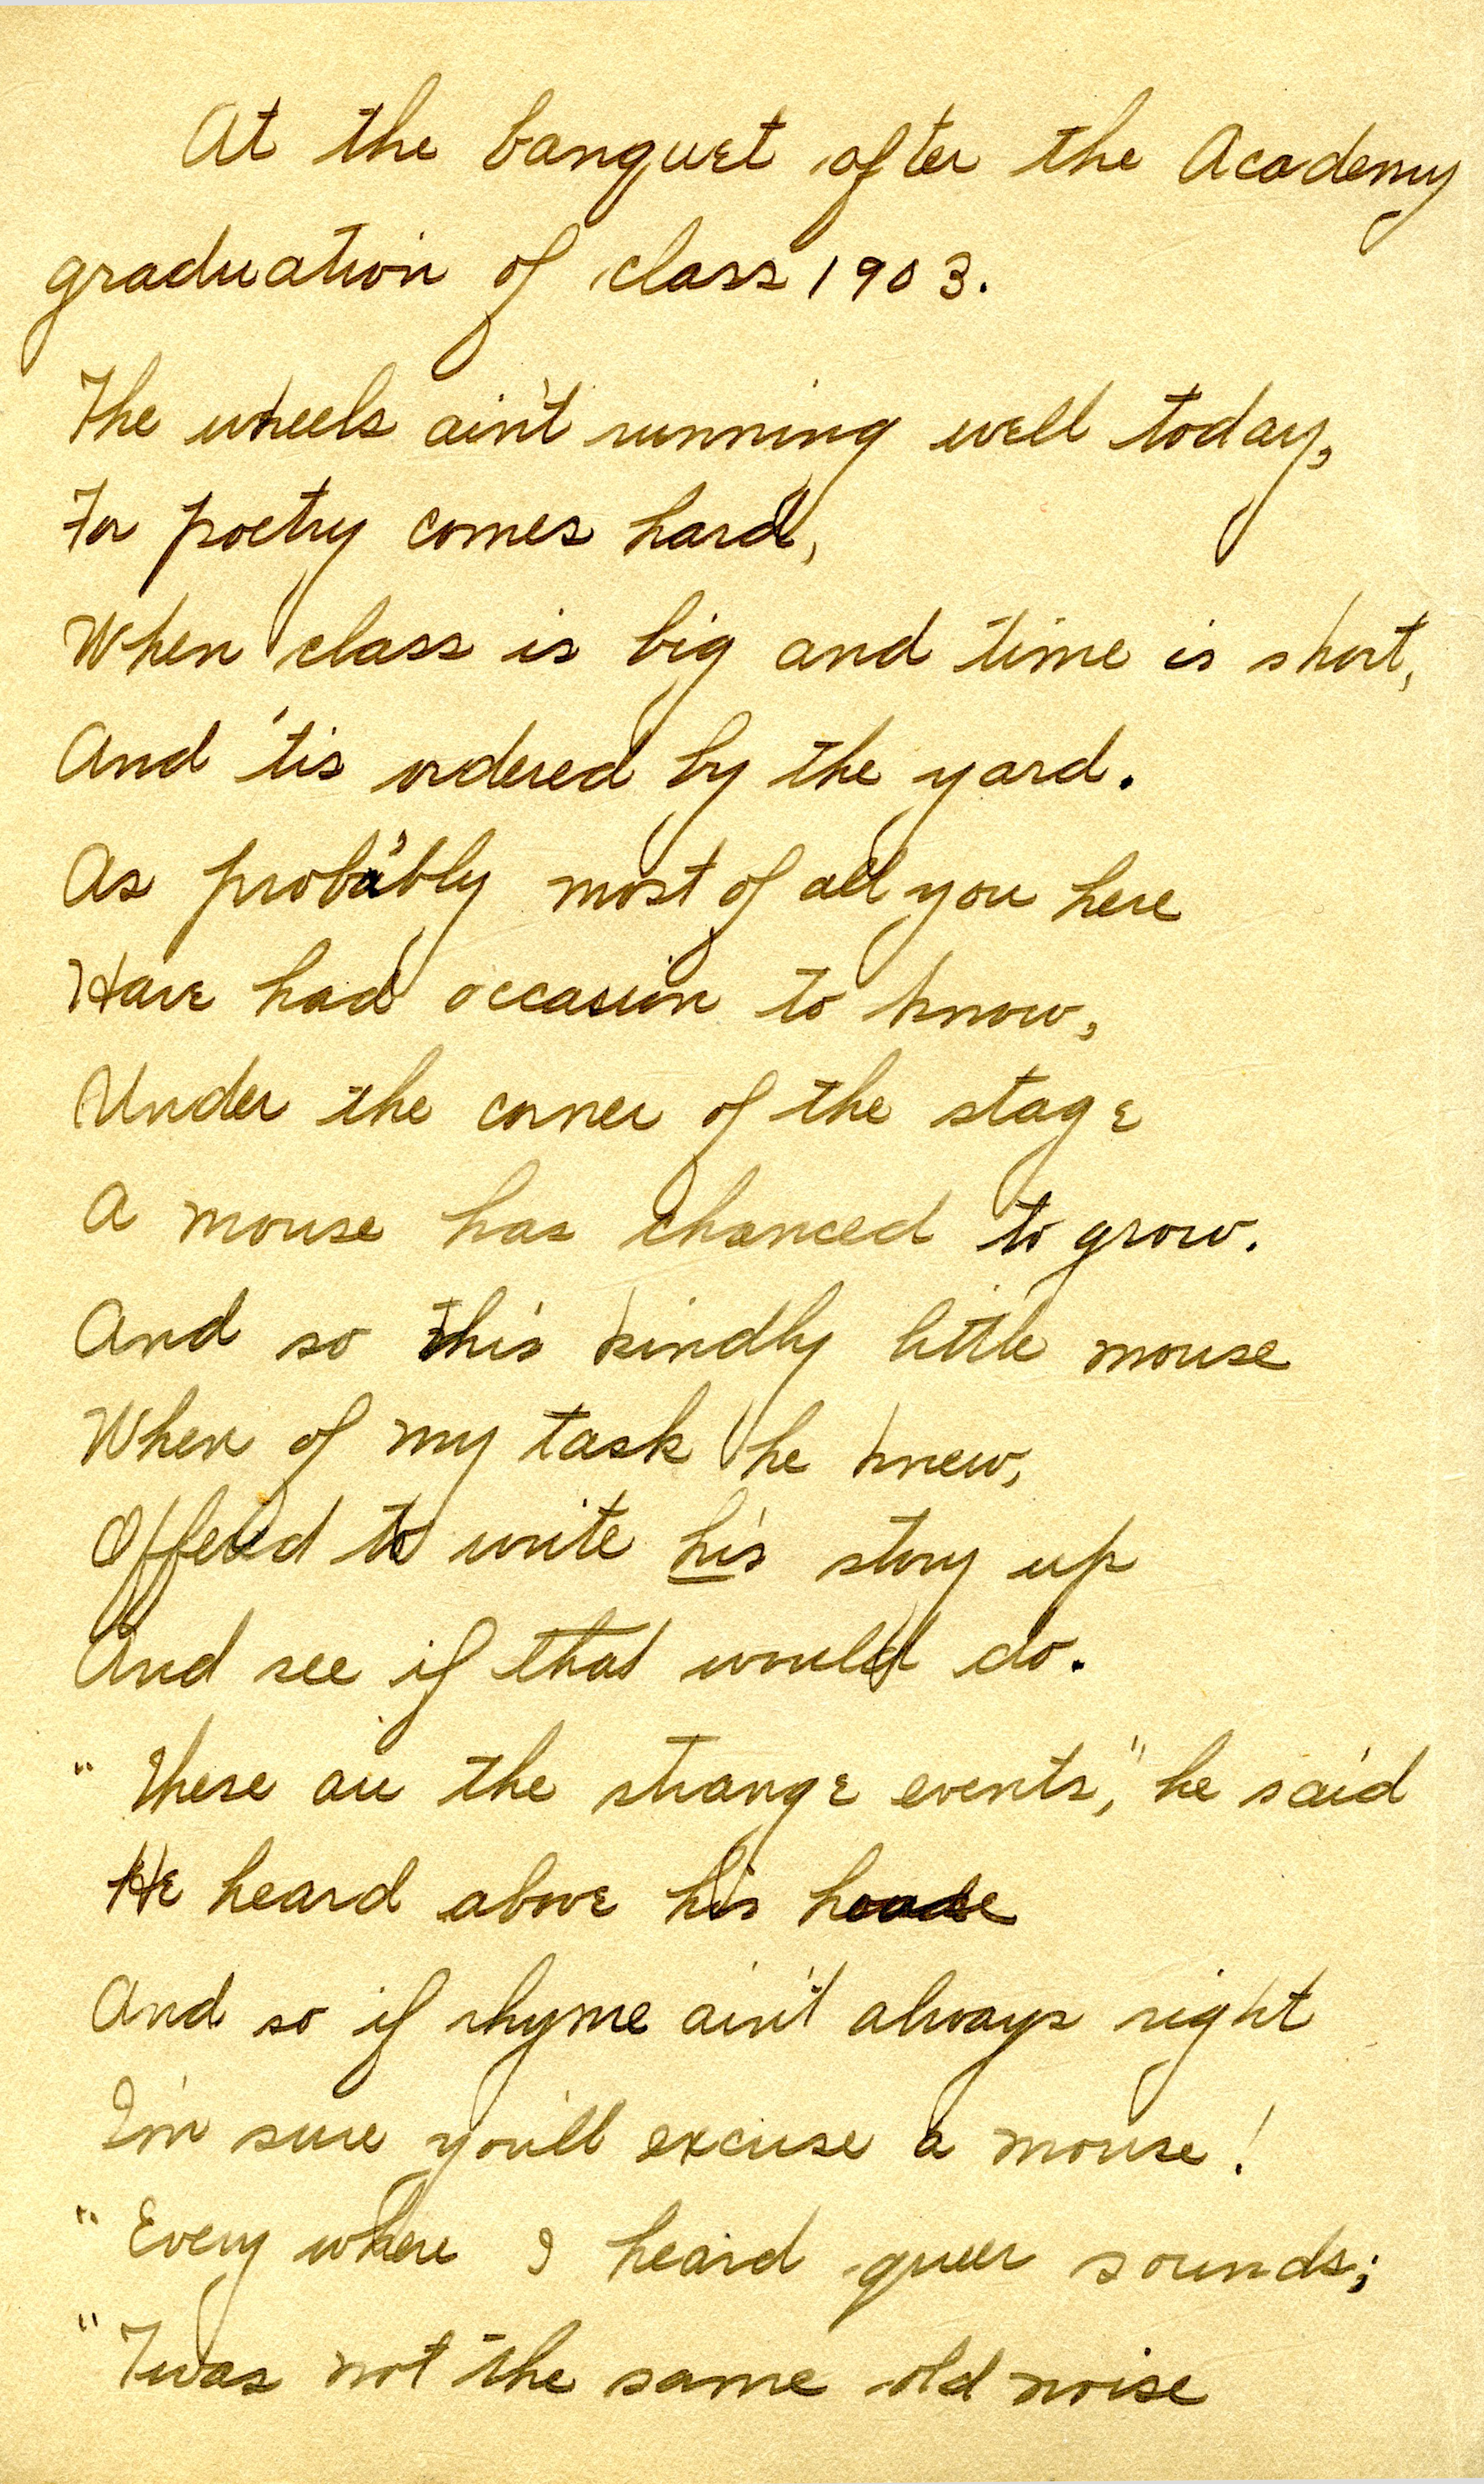 At the banquet after the Academy
graduation of class 1903.
The wheels ain't running well today,
For poetry comes hard,
When class is big and time is short,
And 'tis ordered by the yard.
As probably most of all you here
Have had occasion to know,
Under the corner of the stage
A mouse has chanced to grow.
And so this kindly little mouse
When of my task he knew,
Offered to write his story up
And see if that would do.
"These are the strange events," he said
He heard above his
And so if rhyme ain't always right
I'm sure you'll excuse a mouse!
"Every where I heard queer sounds;
"Twas not the same old noise